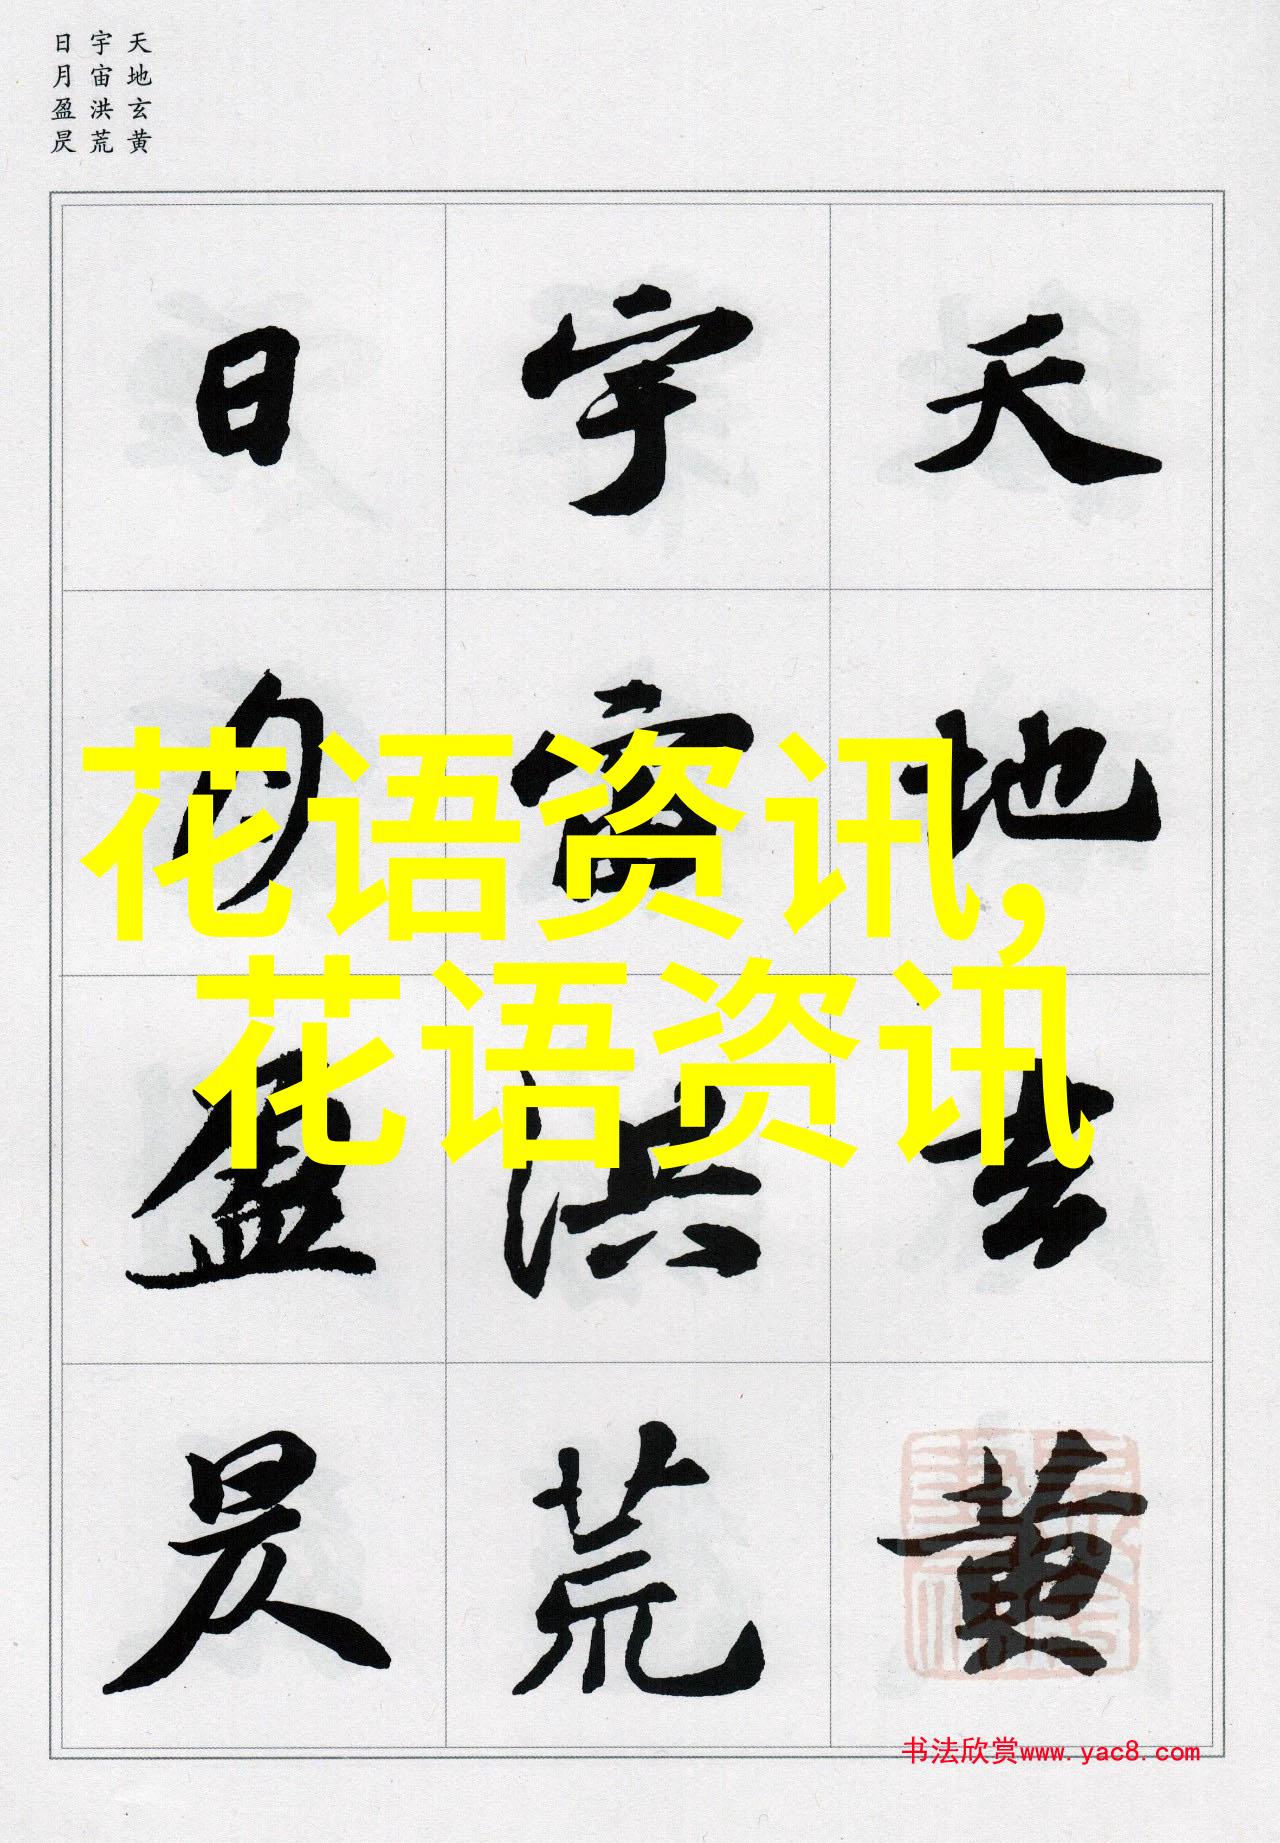 天地玄黄
宇宙洪荒
日月盈昃
天地玄黄
宇宙洪荒
日月盈昃
花语资讯,
花语资讯
书法欣赏www.yac8.com